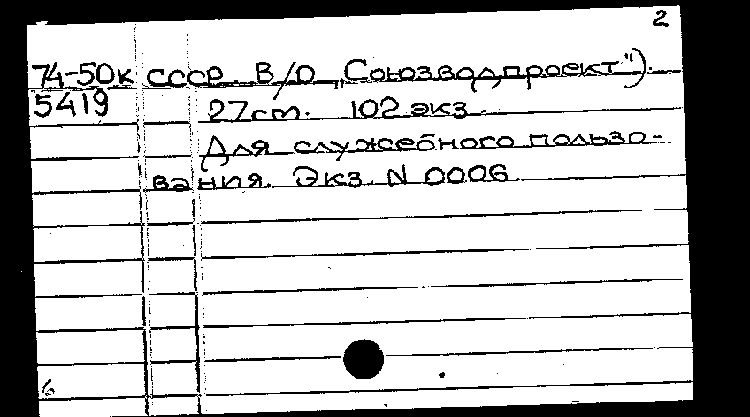 2
74-50к СССР. В/О „Союзводпроект").
5419 27см. 102 экз.
Для служебного пользо-
вания. Экз. N 0006
6